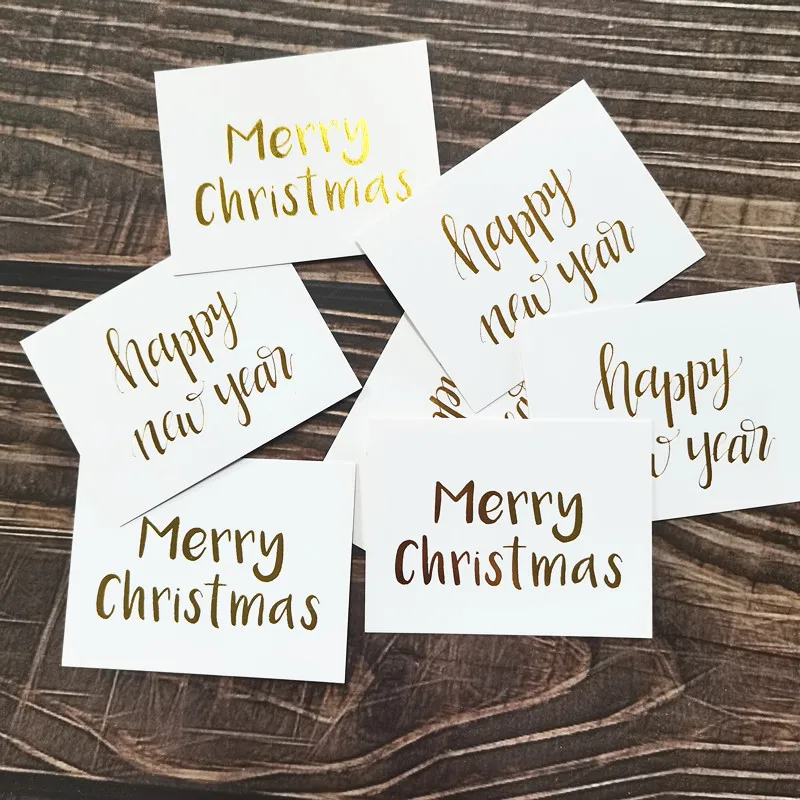 Merry
Christmas
happy
new year
happy
new year
happy
year
Merry
Christmas
Merry
Christmas